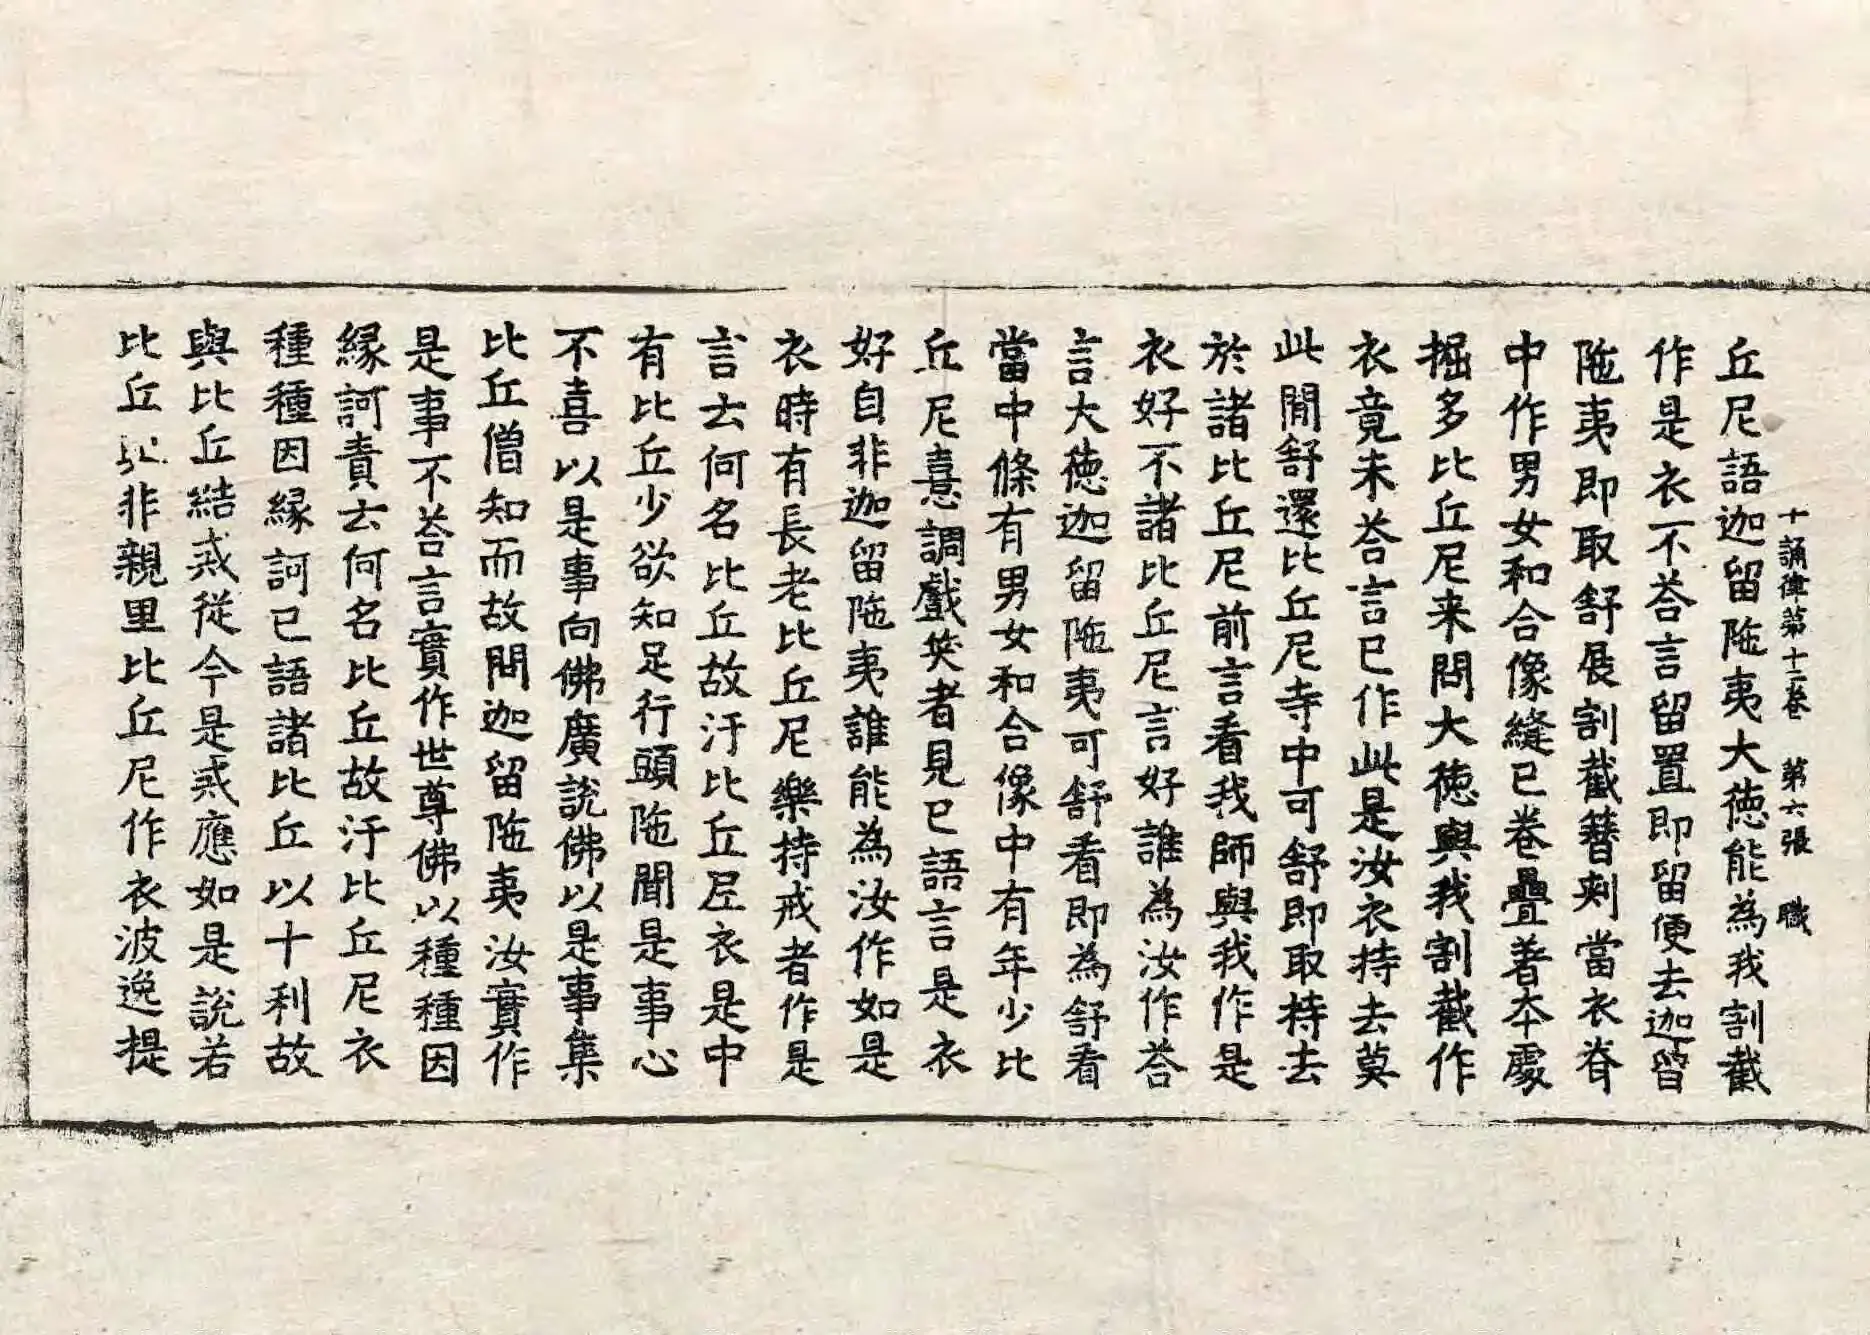 十誦律第十二卷 第六張 職
丘尼語迦留陁夷大德能為我割截
作是衣不荅言留置即留便去迦留
陁夷即取舒展割截簪刾當衣脊
中作男女和合像縫已卷疊著本處
掘多比丘尼来問大德與我割截作
衣竟未荅言已作此是汝衣持去莫
此閒舒還比丘尼寺中可舒即取持去
於諸比丘尼前言看我師與我作是
衣好不諸比丘尼言好誰為汝作荅
言大德迦留陁夷可舒看即為舒看
當中條有男女和合像中有年少比
丘尼憙調戲笑者見已語言是衣
好自非迦留陁夷誰能為汝作如是
衣時有長老比丘尼樂持戒者作是
言云何名比丘故汙比丘尼衣是中
有比丘少欲知足行頭陁聞是事心
不喜以是事向佛廣說佛以是事集
比丘僧知而故問迦留陁夷汝實作
是事不荅言實作世尊佛以種種因
緣訶責云何名比丘故汙比丘尼衣
種種因緣訶已語諸比丘以十利故
與比丘結戒從今是戒應如是說若
比丘與非親里比丘尼作衣波逸提